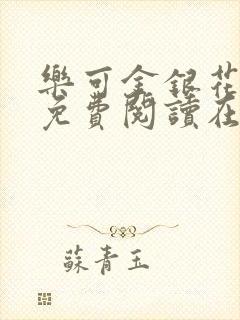 樂可金銀花
免費閱讀在
蘇青玉